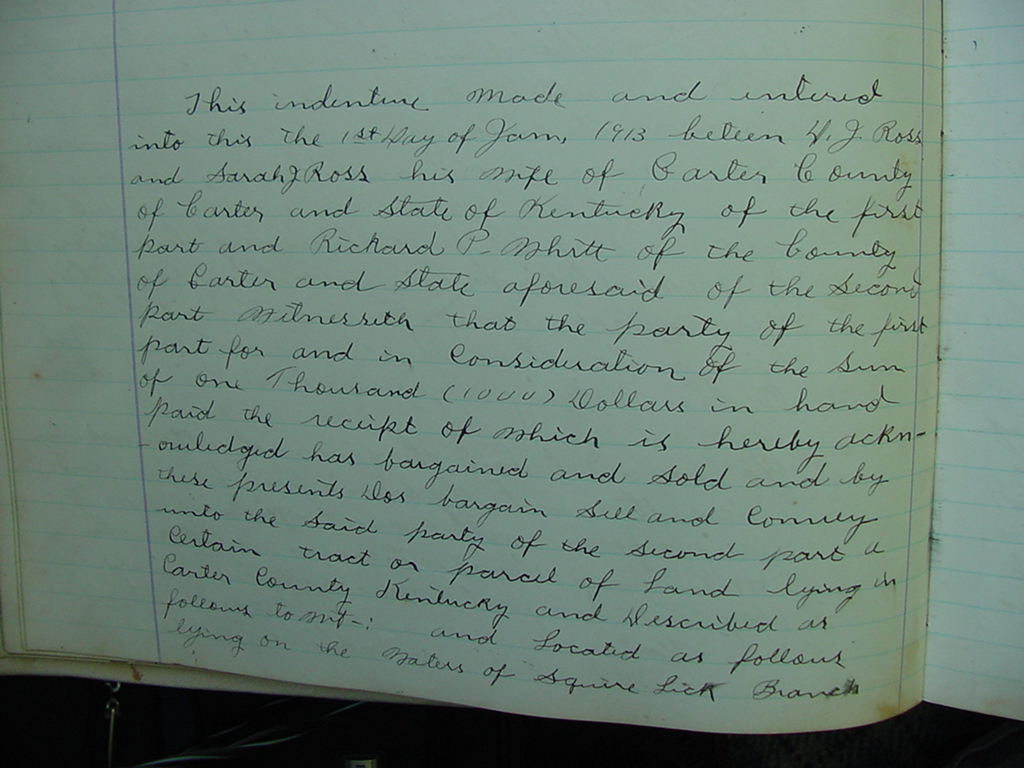 This indenture made and entered
into this the 1st Day of Jan, 1913 beteen J. Ross
and Sarah J Ross his wife of Carter County
of Carter and State of Kentucky of the first
part and Richard P. Whitt of the County
of Carter and State aforesaid of the Second
part Witnesseth that the party of the first
part for and in Consideration of the Sum
of one Thousand (1000) Dollars in hand
paid the receipt of which is hereby ackn-
-owledged has bargained and sold and by
these presents Dos bargain Sell and Convey
unto the Said party of the Second part a
Certain tract or parcel of Land lying in
Carter County Kentucky and Described as
follows to wit-: and Located as follows
lying on the Waters of Squire Lick Branch